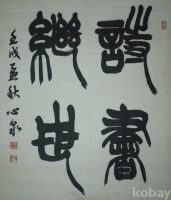 詩書
繼世
壬戌孟秋 心泉
kobay